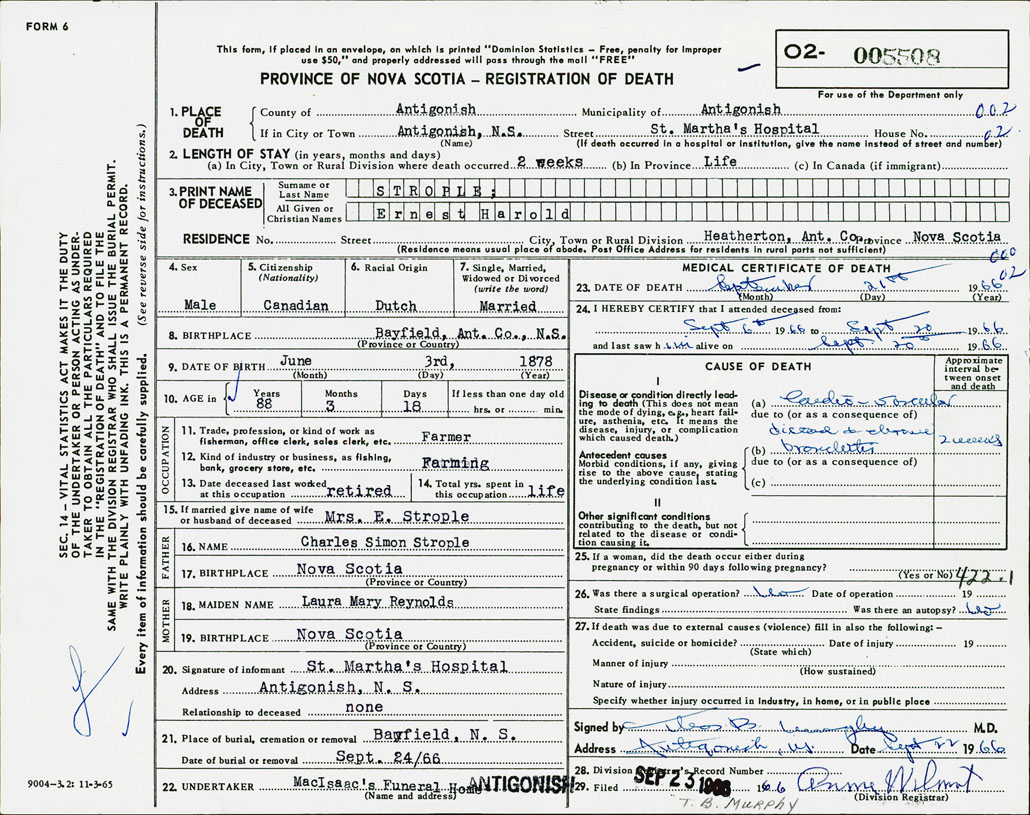 FORM 6
This form, if placed in an envelope, on which is printed "Dominion Statistics – Free, penalty for improper
use $50," and properly addressed will pass through the mail "FREE"
PROVINCE OF NOVA SCOTIA – REGISTRATION OF DEATH
O2- 005508
For use of the Department only
1. PLACE OF DEATH
County of Antigonish Municipality of Antigonish 002
If in City or Town Antigonish, N.S. Street St. Martha's Hospital House No. 02
(Name) (If death occurred in a hospital or institution, give the name instead of street and number)
2. LENGTH OF STAY (in years, months and days)
(a) In City, Town or Rural Division where death occurred 2 weeks (b) In Province Life (c) In Canada (if immigrant)
3. PRINT NAME OF DECEASED
Surname or Last Name STROPLE;
All Given or Christian Names Ernest Harold
RESIDENCE No. Street City, Town or Rural Division Heatherton, Ant. Co., Province Nova Scotia
(Residence means usual place of abode. Post Office Address for residents in rural parts not sufficient)
4. Sex
Male
5. Citizenship
(Nationality)
Canadian
6. Racial Origin
Dutch
7. Single, Married,
Widowed or Divorced
(write the word)
Married
8. BIRTHPLACE Bayfield, Ant. Co., N.S.
(Province or Country)
9. DATE OF BIRTH June 3rd, 1878
(Month) (Day) (Year)
10. AGE in Years Months Days If less than one day old
88 3 18 hrs. or min.
OCCUPATION
11. Trade, profession, or kind of work as
fisherman, office clerk, sales clerk, etc. Farmer
12. Kind of industry or business, as fishing,
bank, grocery store, etc. Farming
13. Date deceased last worked
at this occupation retired
14. Total yrs. spent in
this occupation life
15. If married give name of wife
or husband of deceased Mrs. E. Strople
FATHER
16. NAME Charles Simon Strople
17. BIRTHPLACE Nova Scotia
(Province or Country)
MOTHER
18. MAIDEN NAME Laura Mary Reynolds
19. BIRTHPLACE Nova Scotia
(Province or Country)
20. Signature of informant St. Martha's Hospital
Address Antigonish, N. S.
Relationship to deceased none
21. Place of burial, cremation or removal Bayfield, N. S.
Date of burial or removal Sept. 24/66
22. UNDERTAKER MacIsaac's Funeral Home ANTIGONISH
(Name and address)
MEDICAL CERTIFICATE OF DEATH
000
02
23. DATE OF DEATH September 21st 1966
(Month) (Day) (Year)
24. I HEREBY CERTIFY that I attended deceased from:
Sept 6th 1966 to Sept 20 1966
and last saw him alive on Sept 20th 1966
CAUSE OF DEATH
Approximate
interval be-
tween onset
and death
I
Disease or condition directly lead-
ing to death (This does not mean
the mode of dying, e.g., heart fail-
ure, asthenia, etc. It means the
disease, injury, or complication
which caused death.)
(a) Cardio-vascular
due to (or as a consequence of)
disease & chronic
2 weeks
Antecedent causes
Morbid conditions, if any, giving
rise to the above cause, stating
the underlying condition last.
(b) bronchitis
due to (or as a consequence of)
(c)
II
Other significant conditions
contributing to the death, but not
related to the disease or condi-
tion causing it.
25. If a woman, did the death occur either during
pregnancy or within 90 days following pregnancy?
(Yes or No) 422.1
26. Was there a surgical operation? No Date of operation 19
State findings Was there an autopsy? No
27. If death was due to external causes (violence) fill in also the following: –
Accident, suicide or homicide? Date of injury 19
(State which)
Manner of injury
(How sustained)
Nature of injury
Specify whether injury occurred in industry, in home, or in public place
Signed by M.D.
Address Antigonish, N.S. Date Sept 22 1966
28. Division Registrar's Record Number
29. Filed SEP 23 1966 1966 Wilmot
(Division Registrar)
T. B. MURPHY
SEC. 14 – VITAL STATISTICS ACT MAKES IT THE DUTY
OF THE UNDERTAKER OR PERSON ACTING AS UNDER-
TAKER TO OBTAIN ALL THE PARTICULARS REQUIRED
IN THE "REGISTRATION OF DEATH", AND TO FILE THE
SAME WITH THE DIVISION REGISTRAR WHO SHALL ISSUE THE BURIAL PERMIT.
WRITE PLAINLY WITH UNFADING INK. THIS IS A PERMANENT RECORD.
Every item of information should be carefully supplied. (See reverse side for instructions.)
9004-3.2: 11-3-65